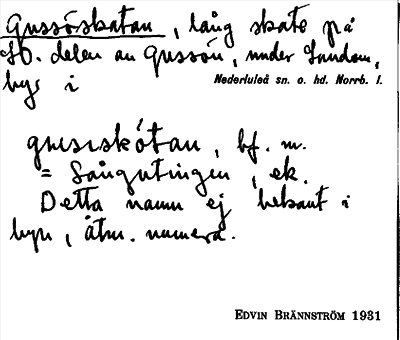 Gussöskatan, lång skate på
SO. delen av Gussön, under Sundom,
bys i
Nederluleå sn. o. hd. Norrb. l.
gusıskótan, bf. m.
= Sångutingen, ek.
Detta namn ej bekant i
byn, åtm. numera.
EDVIN BRÄNNSTRÖM 1931